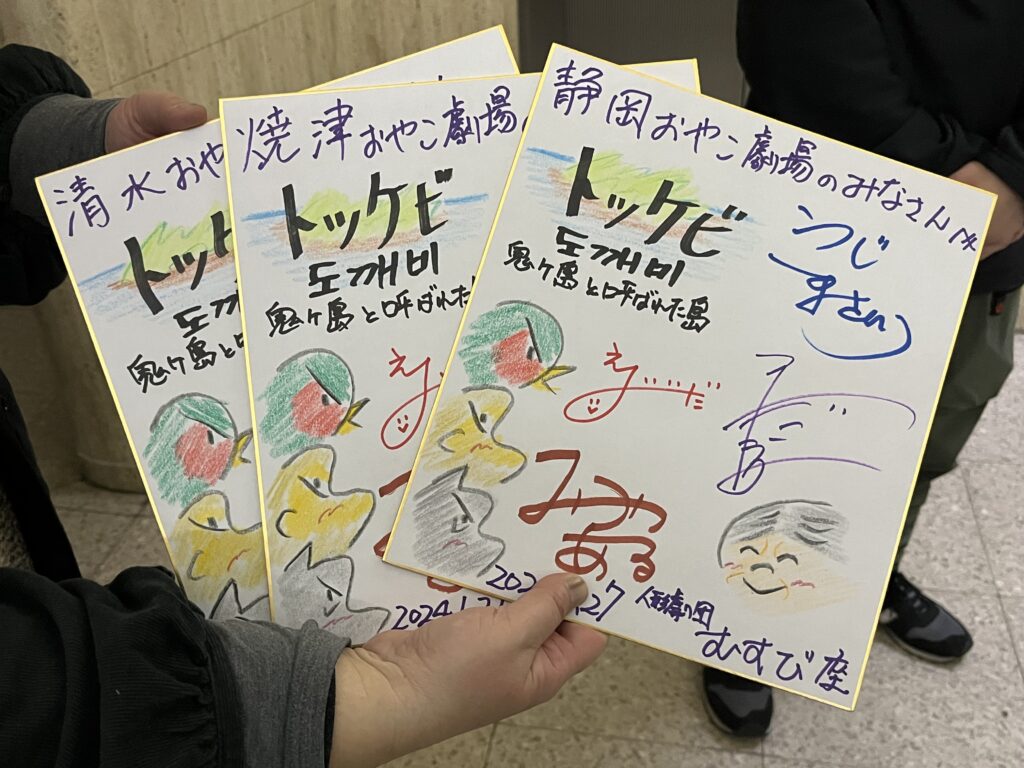 清水おや
トッケ
도깨
鬼ヶ島と
焼津おやこ劇場の
トッケビ
도깨비
鬼ヶ島と呼ばれた
2024.1.2
静岡おやこ劇場のみなさんへ
トッケビ
도깨비
鬼ヶ島と呼ばれた島
つじ
まさみつ
みみ
ある
27
人形劇団
むすび座